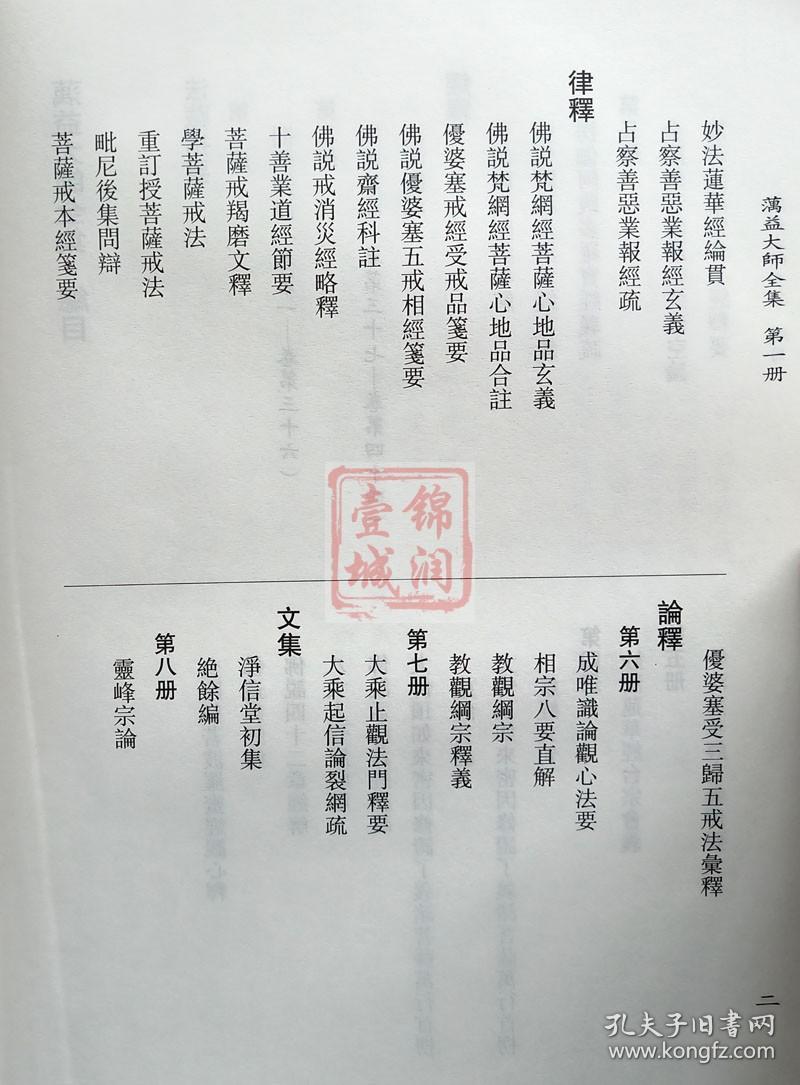 蕅益大師全集 第一册
妙法蓮華經綸貫
占察善惡業報經玄義
占察善惡業報經疏
律釋
佛説梵網經菩薩心地品玄義
佛説梵網經菩薩心地品合註
優婆塞戒經受戒品箋要
佛説優婆塞五戒相經箋要
佛説齋經科註
佛説戒消災經略釋
十善業道經節要
菩薩戒羯磨文釋
學菩薩戒法
重訂授菩薩戒法
毗尼後集問辯
菩薩戒本經箋要
優婆塞受三歸五戒法彙釋
論釋
第六册
成唯識論觀心法要
相宗八要直解
教觀綱宗
教觀綱宗釋義
第七册
大乘止觀法門釋要
大乘起信論裂網疏
文集
淨信堂初集
絶餘編
第八册
靈峰宗論
二
锦润
壹城
孔夫子旧书网
www.kongfz.com